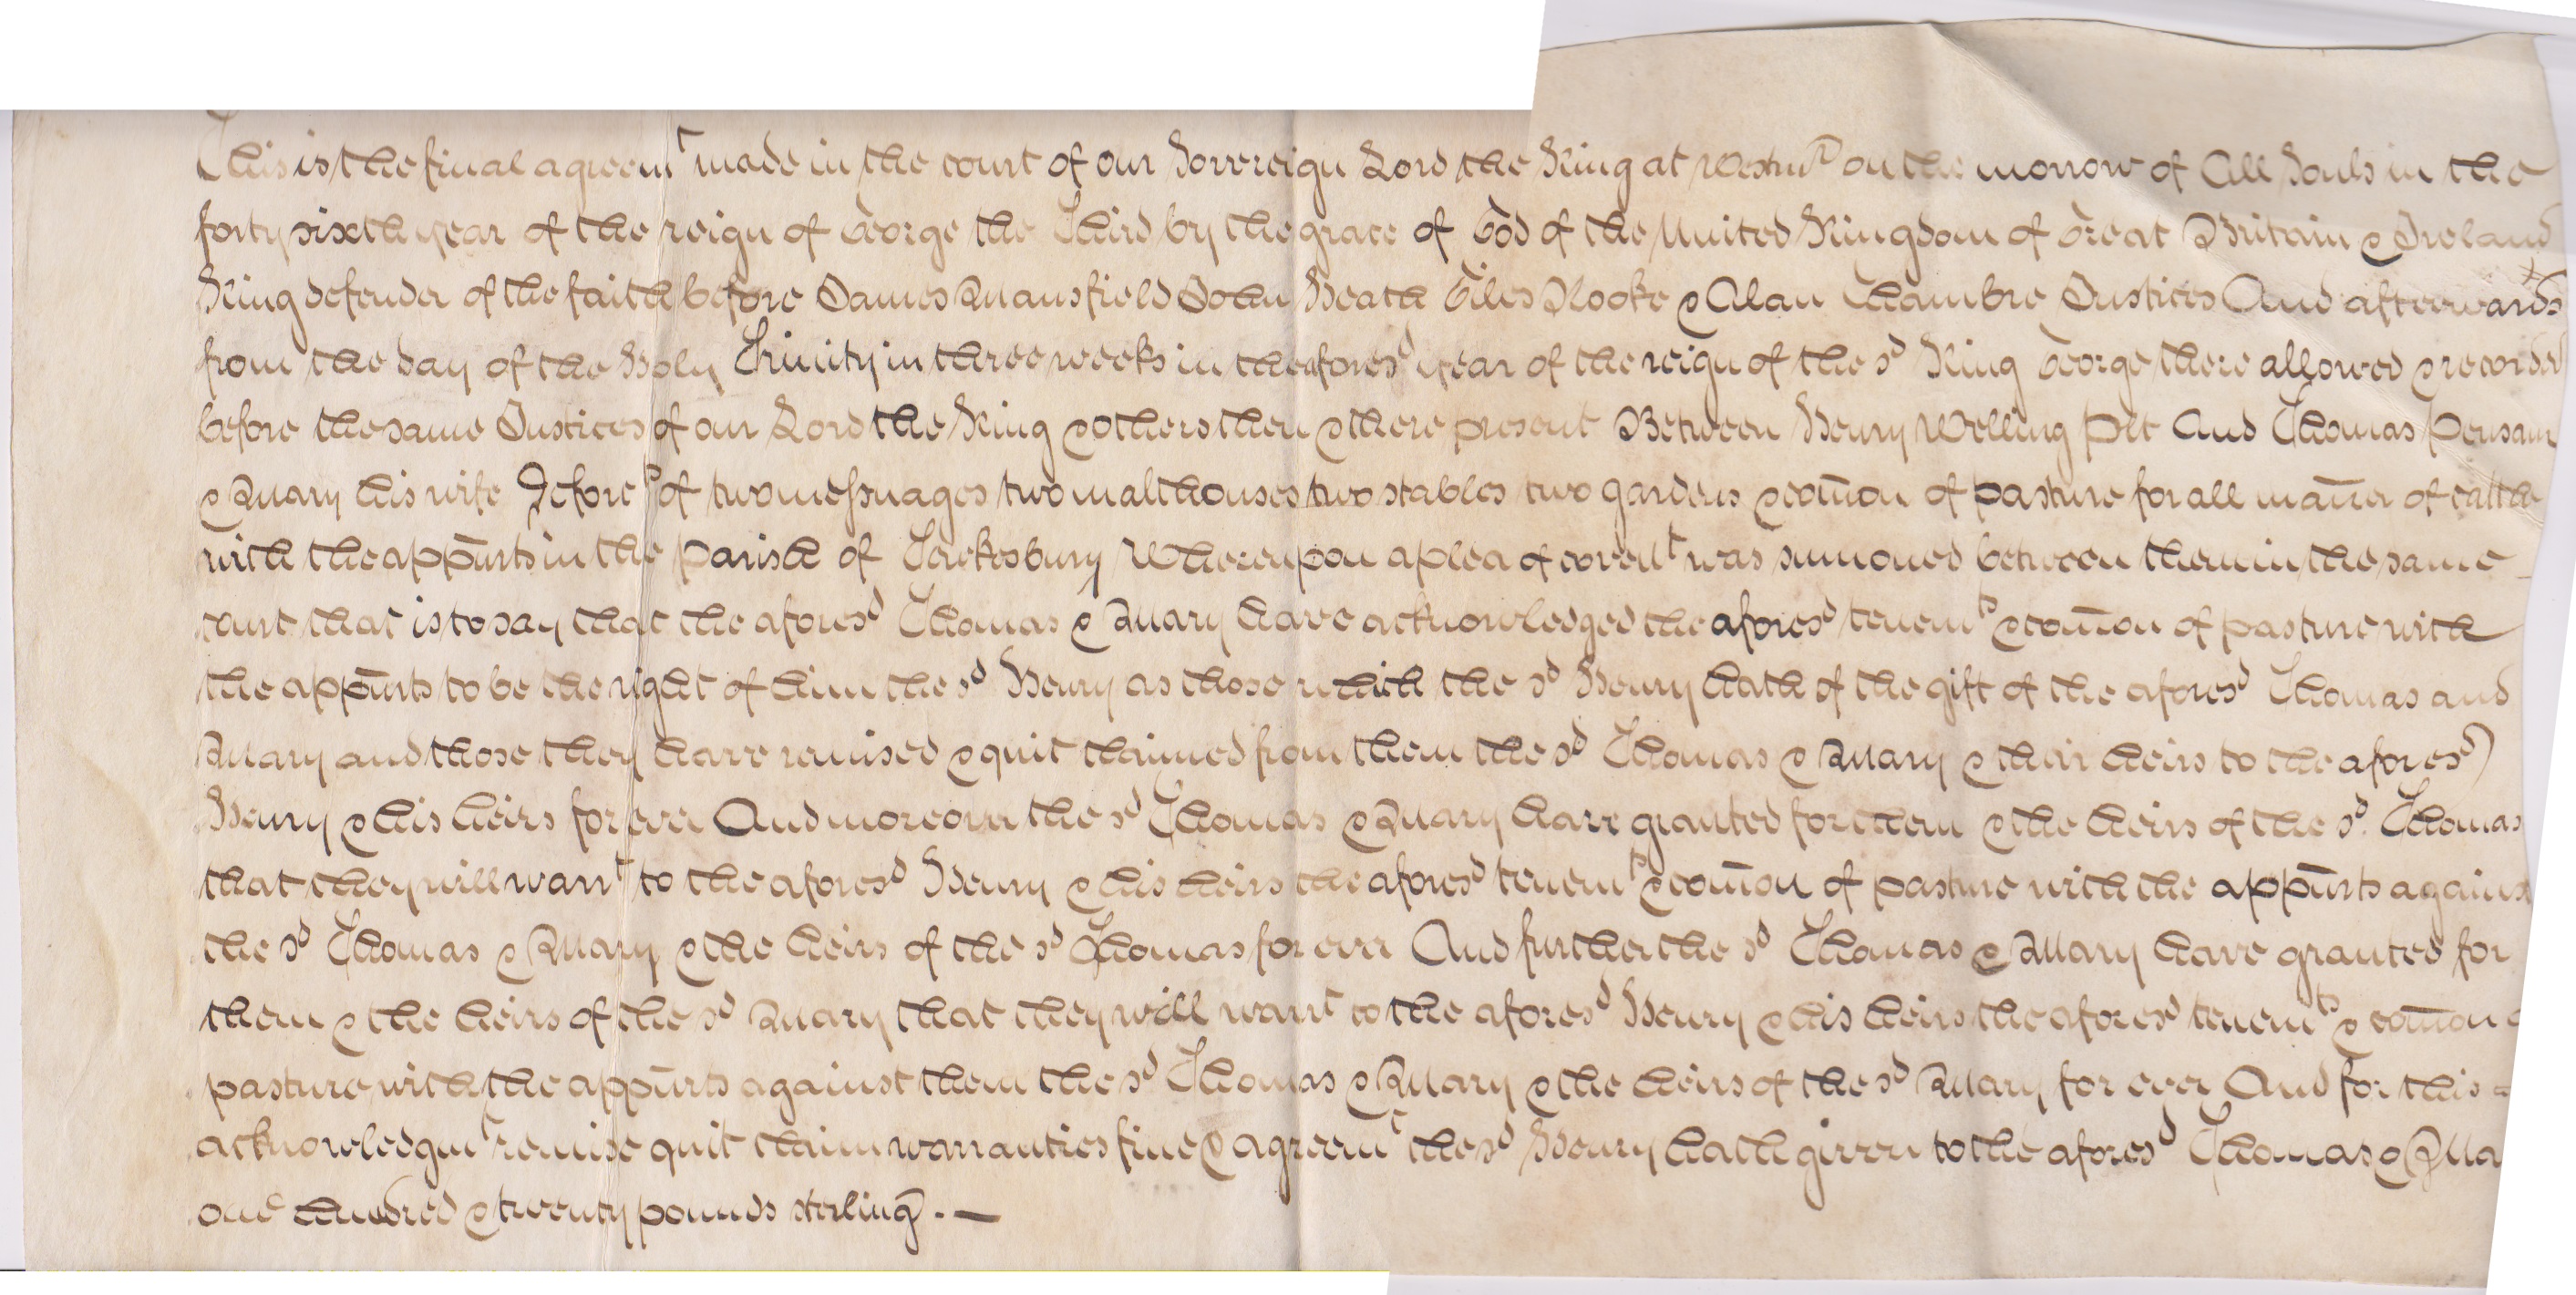 This is the final agreemt made in the court of our Sovereign Lord the King at Westmr on the morrow of All Souls in the
forty sixth year of the reign of George the Third by the grace of God of the United Kingdom of Great Britain & Ireland
King defender of the faith before James Mansfield John Heath Giles Rooke & Alan Chambre Justices And afterwards
from the day of the Holy Trinity in three weeks in the aforesd year of the reign of the sd King George there allowed & recorded
before the same Justices of our Lord the King & others then & there present Between Henry Welling Plt And Thomas Pensam
& Mary his wife Deforts of two messuages two malthouses two stables two gardens & com̄on of pasture for all man̄er of cattle
with the appurts in the parish of Tewkesbury Whereupon a plea of covent was sum̄oned between them in the same
court that is to say that the aforesd Thomas & Mary have acknowledged the aforesd tenemts & com̄on of pasture with
the appurts to be the right of him the sd Henry as those which the sd Henry hath of the gift of the aforesd Thomas and
Mary and those they have remised & quit claimed from them the sd Thomas & Mary & their heirs to the aforesd
Henry & his heirs for ever And moreover the sd Thomas & Mary have granted for them & the heirs of the sd Thomas
that they will warrt to the aforesd Henry & his heirs the aforesd tenemts & com̄on of pasture with the appurts against
the sd Thomas & Mary & the heirs of the sd Thomas for ever And further the sd Thomas & Mary have granted for
them & the heirs of the sd Mary that they will warrt to the aforesd Henry & his heirs the aforesd tenemts & com̄on
pasture with the appurts against them the sd Thomas & Mary & the heirs of the sd Mary for ever And for this
acknowledgmt remise quit claim warranties fine & agreemt the sd Henry hath given to the aforesd Thomas & Ma
one hundred & twenty pounds sterling. —